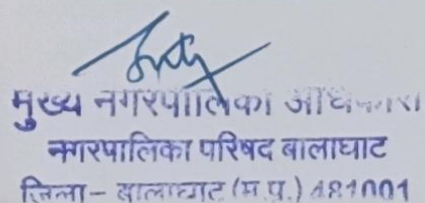 मुख्य नगरपालिका अधिकारी
नगरपालिका परिषद बालाघाट
जिला - बालाघाट (म.प्र.) 481001